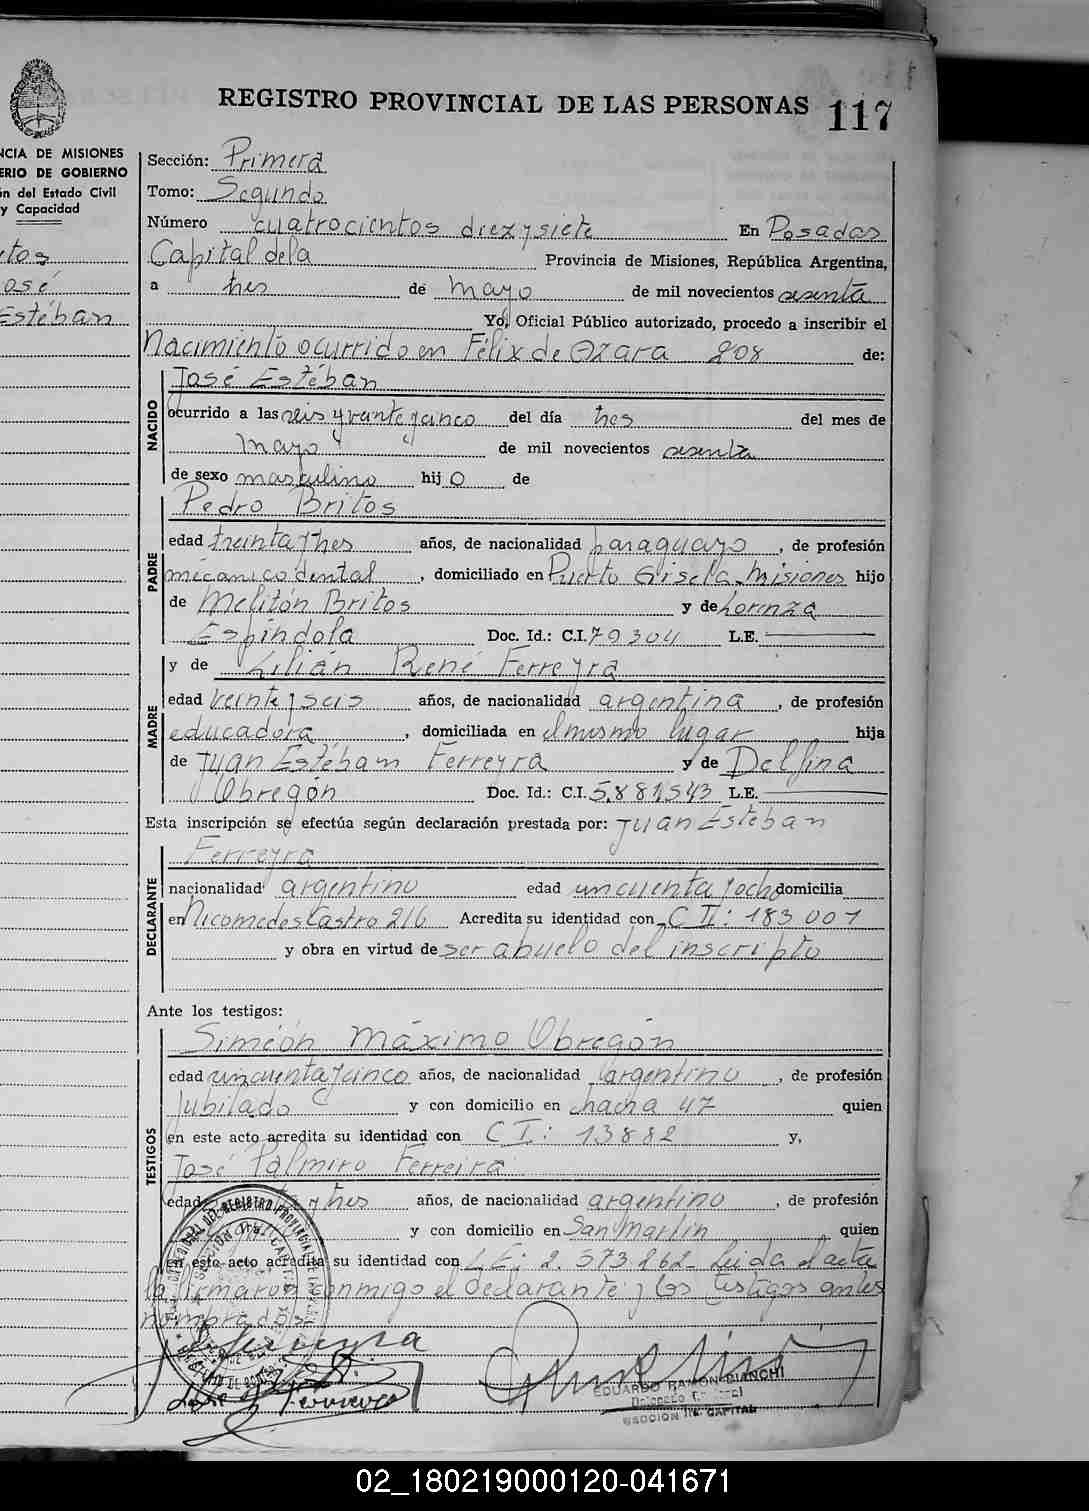 REGISTRO PROVINCIAL DE LAS PERSONAS 117
NCIA DE MISIONES
ERIO DE GOBIERNO
ón del Estado Civil
y Capacidad
itos
osé
Estéban
Sección: Primera
Tomo: Segundo
Número cuatrocientos diez y siete En Posadas
Capital de la Provincia de Misiones, República Argentina,
a tres de mayo de mil novecientos sesenta
Yo, Oficial Público autorizado, procedo a inscribir el
Nacimiento ocurrido en Félix de Azara 208 de:
NACIDO
José Estéban
ocurrido a las seis y veinte y cinco del día tres del mes de
mayo de mil novecientos sesenta
de sexo masculino hijo de
Pedro Britos
PADRE
edad treinta y tres años, de nacionalidad paraguayo, de profesión
mecánico dental, domiciliado en Puerto Gisela-Misiones hijo
de Melitón Britos y de Lorenza
Espíndola Doc. Id.: C.I. 79304 L.E.
y de Lilián René Ferreyra
MADRE
edad veinte y seis años, de nacionalidad argentina, de profesión
educadora, domiciliada en el mismo lugar hija
de Juan Estéban Ferreyra y de Delfina
Obregón Doc. Id.: C.I. 5.881,543 L.E.
Esta inscripción se efectúa según declaración prestada por: Juan Esteban
Ferreyra
DECLARANTE
nacionalidad argentino edad cincuenta y ocho domicilia
en Nicomedes Castro 216 Acredita su identidad con C I: 183 001
y obra en virtud de ser abuelo del inscripto
Ante los testigos:
TESTIGOS
Simeón Máximo Obregón
edad cincuenta y cinco años, de nacionalidad argentino, de profesión
Jubilado y con domicilio en chacra 47 quien
en este acto acredita su identidad con C I: 13882 y,
José Palmiro Ferreira
edad y tres años, de nacionalidad argentino, de profesión
y con domicilio en San Martín quien
en este acto acredita su identidad con L E: 2.573262- Leida el acta
la firmaron conmigo el declarante y los testigos antes
nombrados
EDUARDO RAMON BIANCHI
SECCION 1ra. CAPITAL
02_180219000120-041671